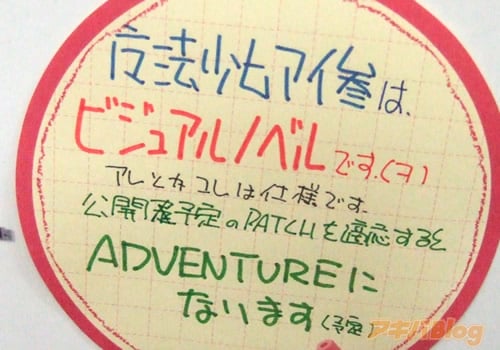 魔法少女アイ参は、
ビジュアルノベルです。(ヲ)
アレとカコレは仕様です。
公開予定のPATCHを適応すると
ADVENTUREに
なります(予定)
アキバBlog